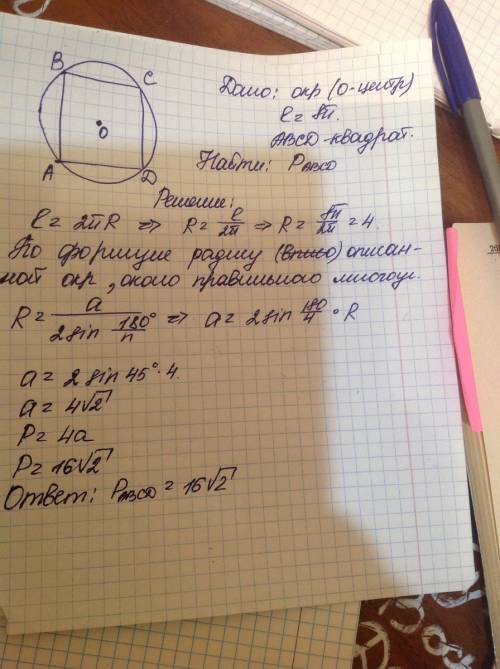 B
C
O
A
D
Дано: окр (O-центр)
ℓ = 8π
ABCD-квадрат.
Найти: P_ABCD
Решение:
ℓ = 2πR => R = ℓ/2π => R = 8π/2π = 4.
По формуле радиу (впис) описан-
ной окр, около правильного многоуг.
R = a/(2sin 180°/n) => a = 2sin 180/4 · R
a = 2 sin 45° · 4.
a = 4√2
P = 4a
P = 16√2
Ответ: P_ABCD = 16√2